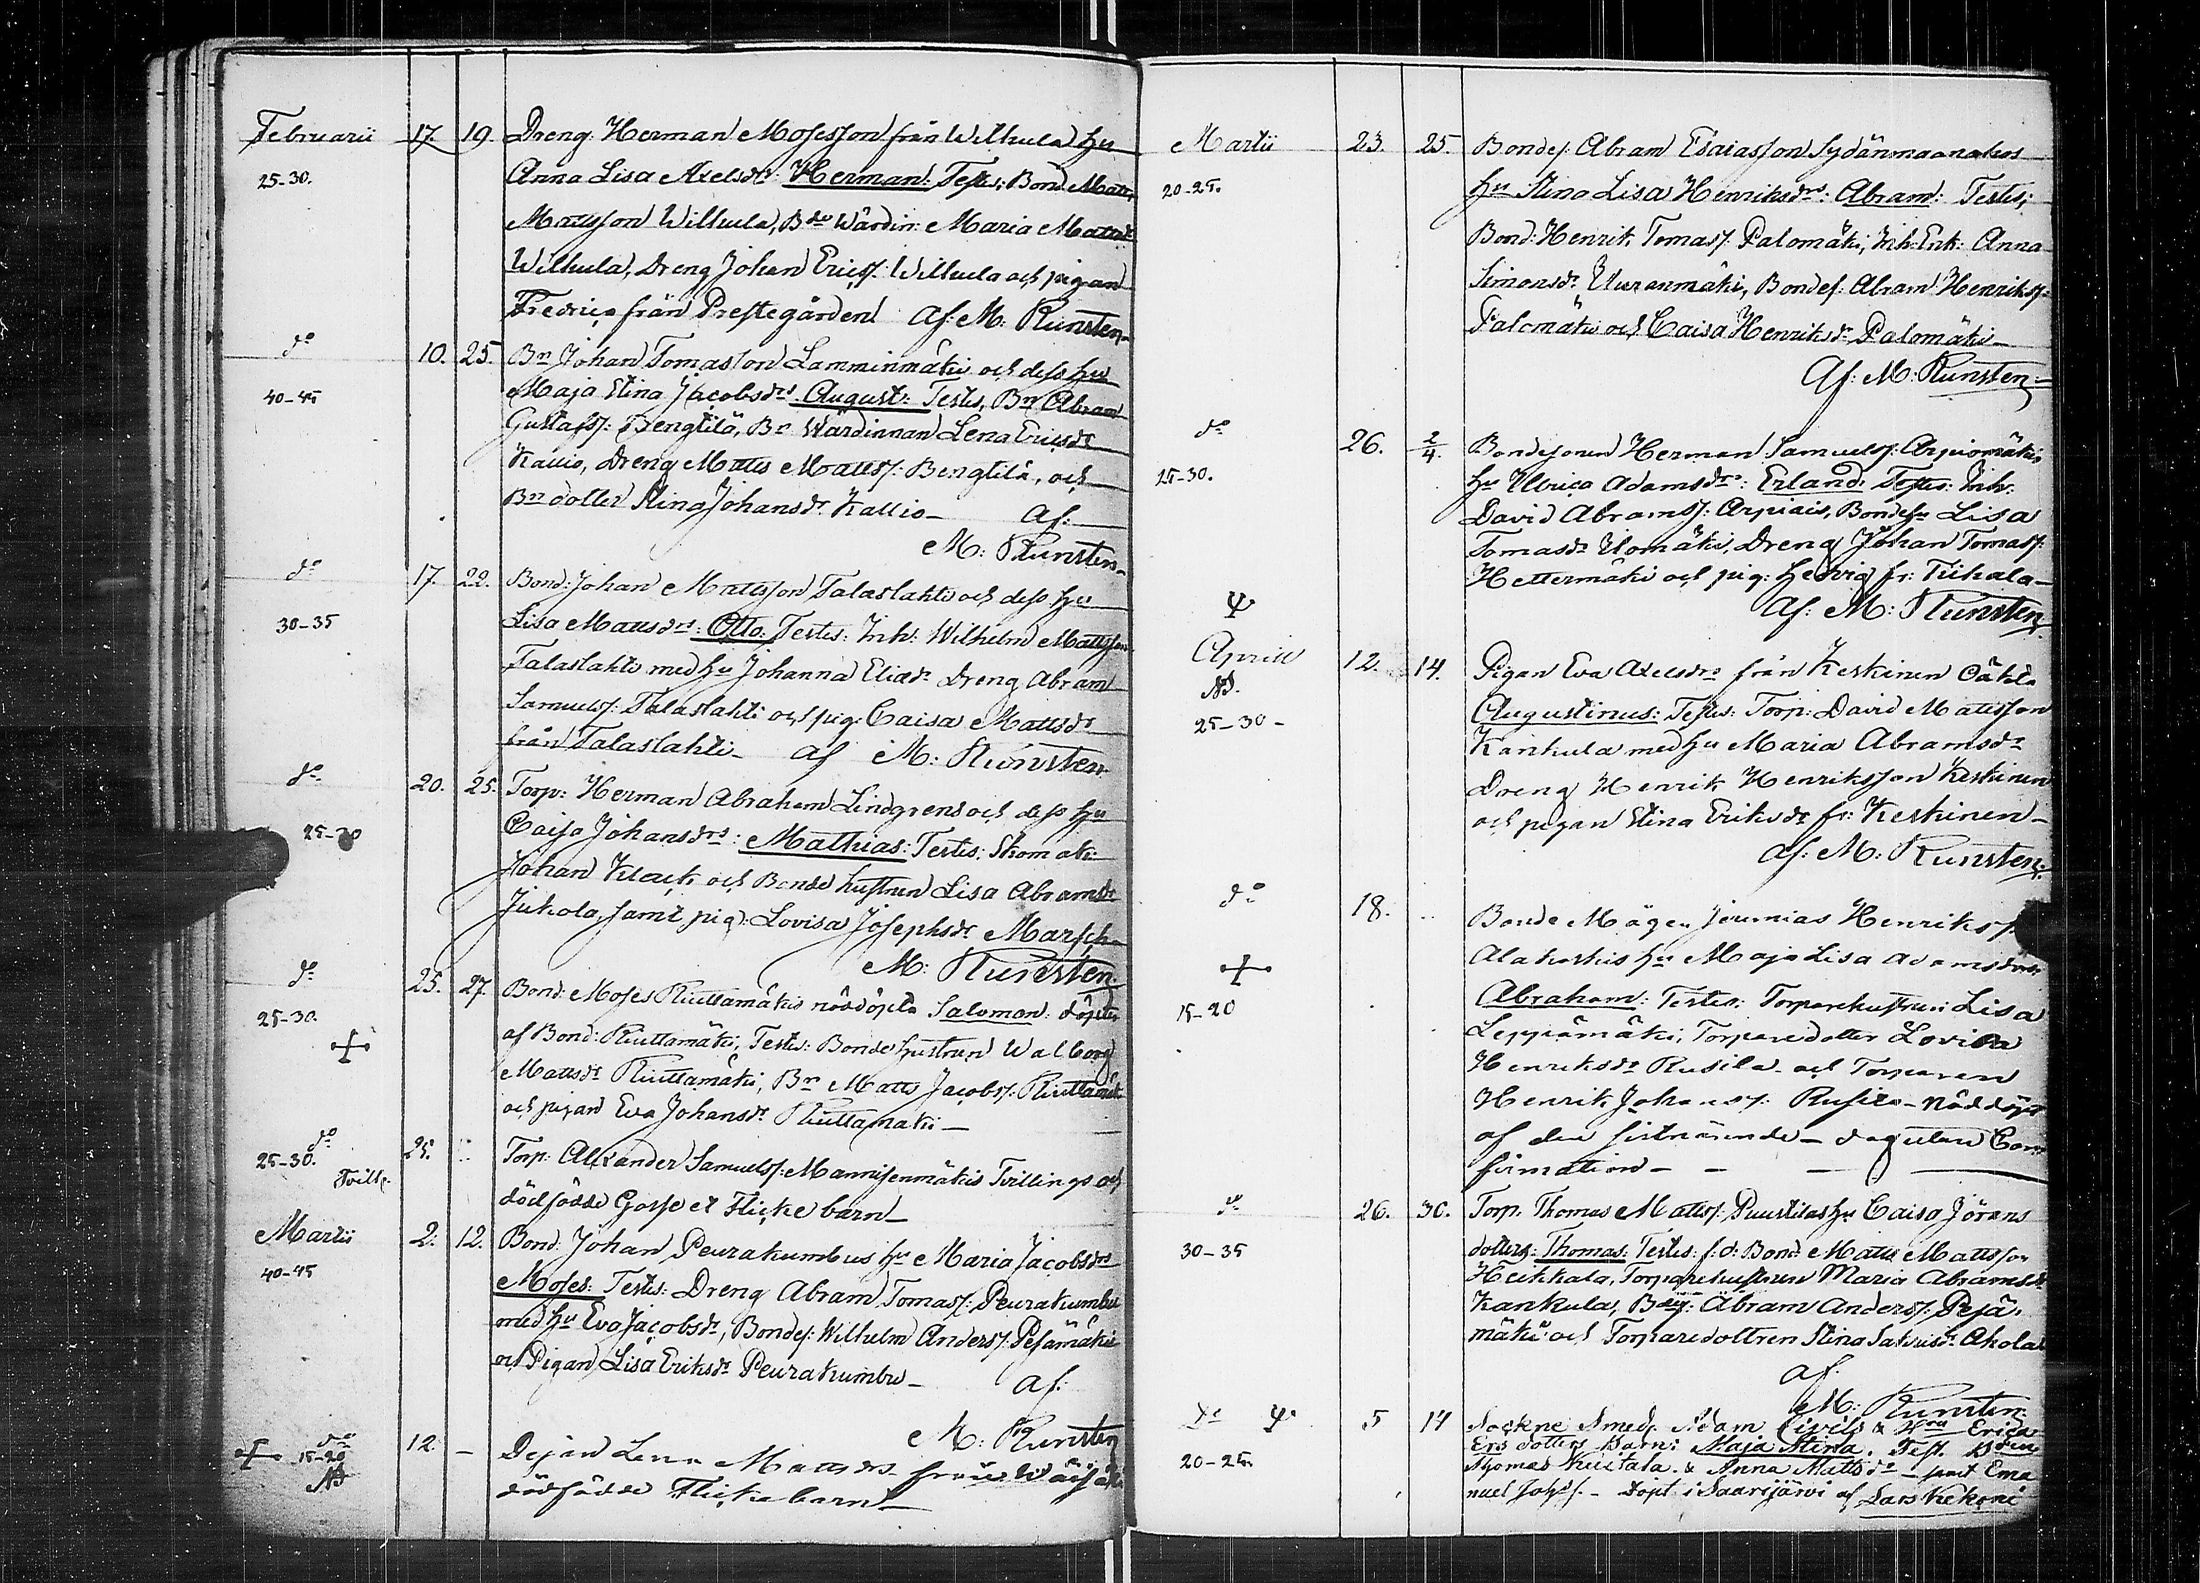 Februarii 17. 19. Dreng Herman Mosesson från Wilkula hu
25-30. Anna Lisa Axelsdr: Herman: Testes: Bond Matts
Mattsson Wilkula, Bde Wärdin: Maria Mattsdr
Wilkula, Dreng Johan Ericss. Wilkula och pigan
Fredrica från Prestegården Af: M: Runsten
do 10. 25. Bn Johan Tomasson Lamminmäki och dess hu
40-45 Maja Stina Jacobsdrs August: Testes, Bn Abram
Gustafss: Bengtilä, Bn Wärdinnan Lena Ericsdr
Kallio, Dreng Matts Mattss: Bengtilä, och
Bn dotter Stina Johansdr Kallio- Af:
M: Runsten-
do 17. 22. Bond: Johan Mattsson Talaslahti och dess hu
30-35 Lisa Mattsdrs: Otto: Testes: Inh: Wilhelm Mattsson
Talaslahti med hu Johanna Eliedr Dreng Abram
Samuelss: Talaslahti och pig: Caisa Mattsdr
från Talaslahti- af M: Runsten
do 20. 25. Torp: Herman Abraham Lindgrens och dess hu
25-30 Caisa Johansdrs: Matthias: Testes: Skomak:
Johan Klack och Bonde hustrun Lisa Abramsdr
Jukola, samt pig: Lovisa Josephsdr Marsch-
M: Runsten
do 25. 27. Bond: Moses Riuttamäkis nöddöpta Salomon: döpter
25-30. af Bond: Riuttamäki, Testes: Bonde hustrun Walborg
Mattsdr Riuttamäki, Bn Matts Jacobss: Riuttamäk
och pigan Eva Johansdr Riuttamäki-
do 25. Torp: Alexander Samuelss: Mannisenmäkis Tvillings och
25-30. Tvill. dödfödde Gosse et Flicke barn-
Martii 2. 12. Bond: Johan Peurakumbus hu Maria Jacobsdrs
40-45 Moses: Testes: Dreng Abram Tomass: Peurakumbu
med hu Eva Jacobsdr, Bondes: Wilhelm Anderss: Pesämäki
och Pigan Lisa Eriksdr Peurakumbu- Af:
M: Runsten
do 12. - Pejan Lena Mattsdrs från
15-20 dödfödde Flicke barn-
Martii 23. 25. Bondes: Abram Esaiasson Sydänmaanakos
20-25. hu Stina Lisa Henriksdrs: Abram: Testes;
Bond: Henrik Tomass: Palomäki, Inh: Enk: Anna
Simonsdr Uuranmäki, Bondes: Abram Henrikss:
Palomäki och Caisa Henriksdr Palomäki-
Af: M: Runsten-
do 26. 2/4. Bondesonen Herman Samuelss: Arpiomäkis
25-30. hu Ulrica Adamsdrs: Erland: Testes: Inh:
David Abramss: Arpiais, Bondehu Lisa
Tomasdr Ulomäki, Dreng Johan Tomass:
Hettermäki och pig: Hedvig fr: Tiihala-
Af: M: Runsten
Aprill 12. 14. Pigan Eva Axelsdrs från Keskinen Oäkta
25-30- Augustinus: Testes: Torp: David Mattsson
Kankula med hu Maria Abramsdr
Dreng Henrik Henriksson Keskinen
och pigan Stina Eriksdr fr: Keskinen-
Af: M: Runsten:
do 18. Bonde Mågen Jeremias Henrikss:
Alakoskis hu Maja Lisa Adamsdrs
15-20 Abraham: Testes: Torparehustrun Lisa
Leppämäki, Torparedotter Lovisa
Henriksdr Rusila och Torparen
Henrik Johanss: Rusila- Nöddöpt
af den sistnämnde- Con
firmation- - -
do 26. 30. Torp. Thomas Mattss: Puustilas hu Caisa Jörans
30-35 dotters: Thomas: Testes: f:d: Bond Matts Mattsson
Heikkala, Torparehustrun Maria Abramsdr
Kankula, Abram Anderss: Pejä-
mäki och Torparedottren Stina Sakrisdr Ahola
af:
M: Runsten
Do 5 14 Sockne Smed Adam Civils & Hru Erica
20-25. Ers dotters Barn: Maja Stina. Test. Bden
Thomas Kuitala. & Anna Mattsdr- samt Ema
nuel Johss.- Döpt i Saarijärvi af Lars Kekoni